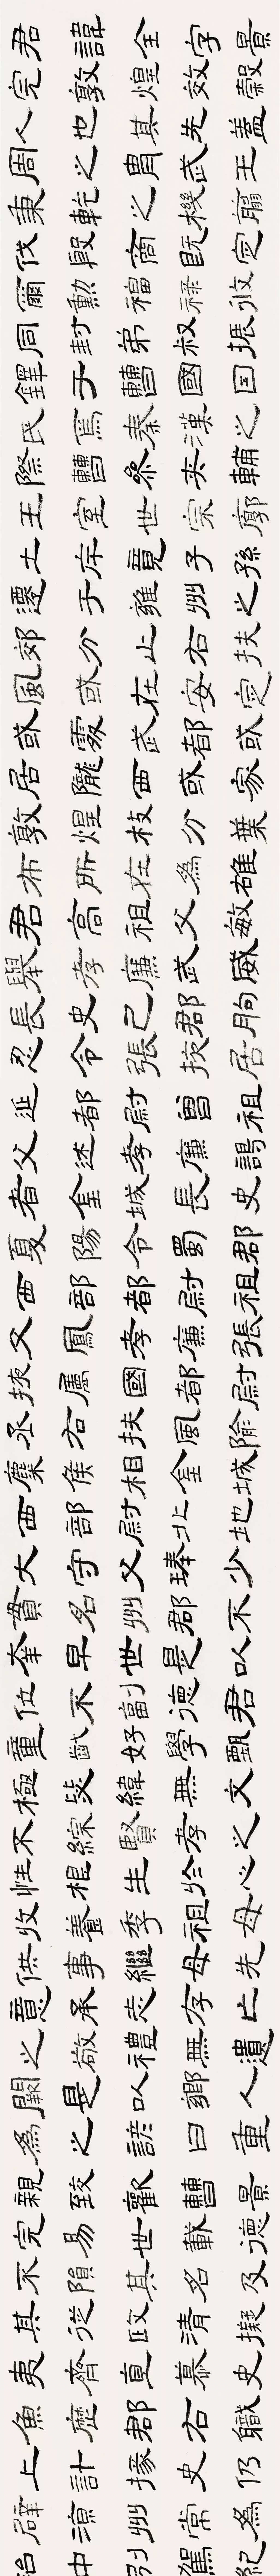 君諱全字景
完敦煌效穀
人也其先蓋
周之胄武王
秉乾之機翦
伐殷商既定
爾勳福祿攸
同封弟叔振
鐸于曹國因
氏焉秦漢之
際曹參夾輔
王室世宗廓
土斥竟子孫
遷于雍州之
郊分止右扶
風或在安定
或處武都或
居隴西或家
敦煌枝分葉
布所在為雄
君高祖父敏
舉孝廉武威
長史巴郡朐
忍令張掖居
延都尉曾祖
父述孝廉謁
者金城長史
夏陽令蜀郡
西部都尉祖
父鳳孝廉張
掖屬國都尉
丞右扶風隃
麋侯相金城
西部尉北地
大守父琫少
貫名州郡不
幸早世是以
位不副德君
童齔好學甄
極毖緯無文
不綜賢孝之
性根生於心
收養季祖母
供事繼母先
意承志存亡
之敬禮無遺
闕是以鄉人
為之諺曰重
親致歡曹景
完易世載德
不隕其名及
其從政清擬
夷齊直慕史
魚歷郡右職
上計掾史仍
辟涼州常為
治中別駕紀